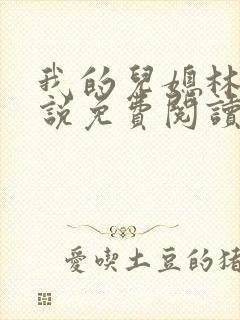 我的兒媳林
說免費閱讀
愛喫土豆的豬